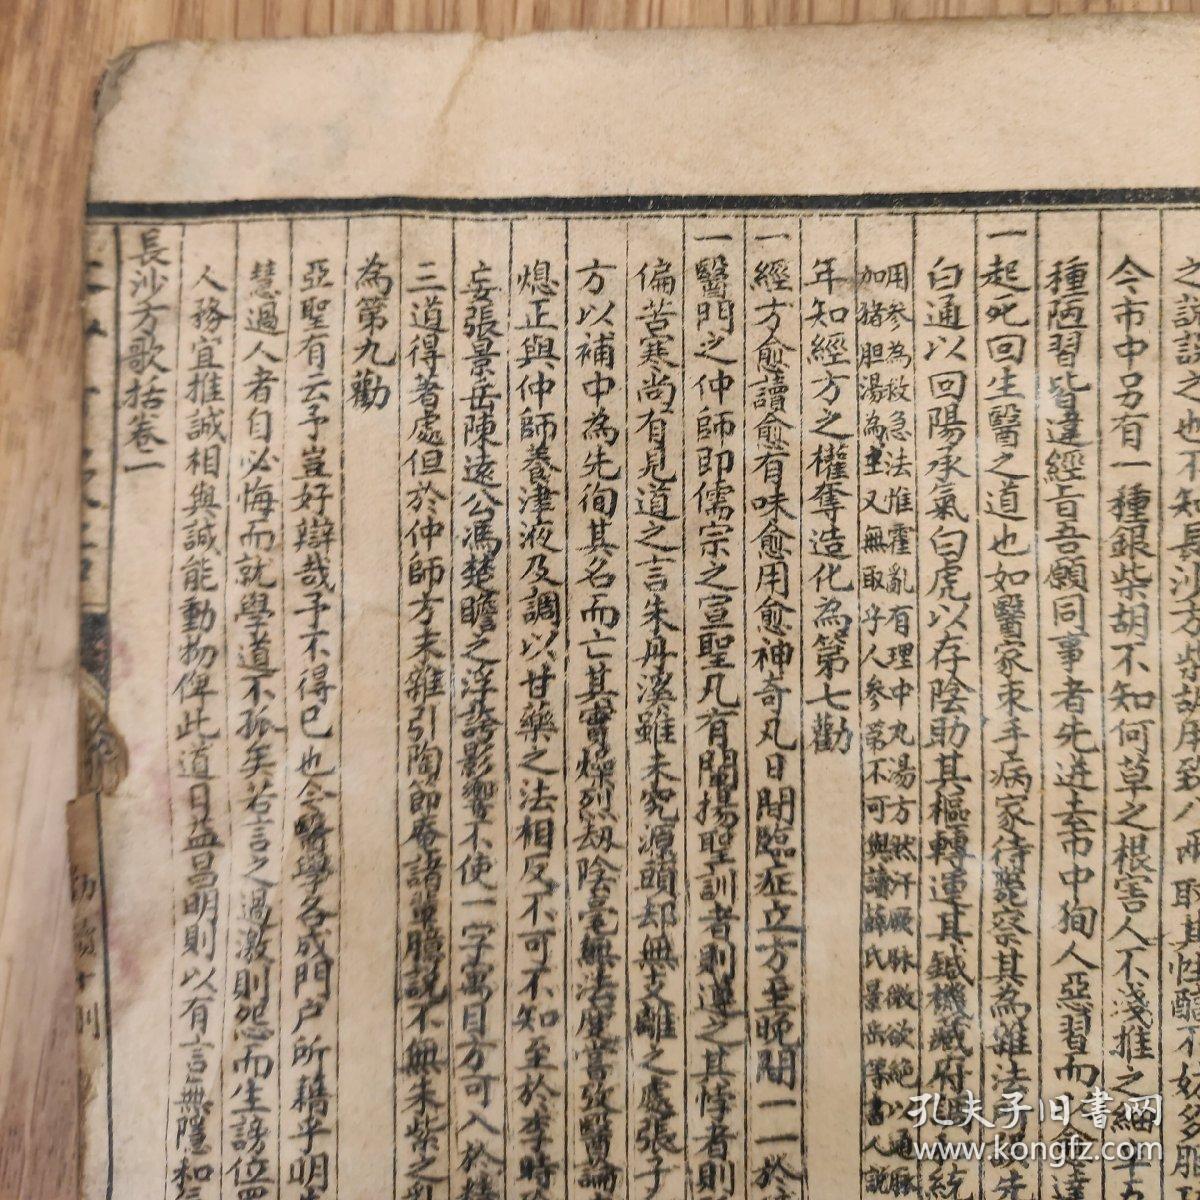 之說誤之也不知長沙方柴胡用至八兩取其性醇不妨多服
今市中另有一種銀柴胡不知何草之根害人不淺推之細辛五
種陋習皆違經旨吾願同事者先進去市中狥人惡習而
一起死回生醫之道也如醫家束手病家待斃察其為雜法
白通以回陽承氣白虎以存陰助其樞轉運其鍼機臟府
用參為救急法惟霍亂有理中丸湯方然汗厥脉微欲絕以通脈
加豬胆湯為主又無取乎人參第不可與讀薛氏景岳等書人說
年知經方之權奪造化為第七勸
一經方愈讀愈有味愈用愈神奇凡日間臨症立方至晚間一一於
一醫門之仲師即儒宗之宣聖凡有闡揚聖訓者則遵之其悖者則
偏苦寒尚有見道之言朱丹溪雖未究源頭却無支離之處張子
方以補中為先狥其名而亡其實燥烈刼陰毫無法度嘗攷醫論
熄正與仲師養津液及調以甘藥之法相反不可不知至於李時
妄張景岳陳遠公馮楚瞻之浮誇影響不使一字寓目方可入於精
三道得著處但於仲師方未雜引陶節庵諸輩臆說不無朱紫之亂
為第九勸
亞聖有云予豈好辯哉予不得已也今醫學各成門戶所藉乎明
慧過人者自必悔而就學道不孤矣若言之過激則怨而生謗位置
人務宜推誠相與誠能動物俾此道日益昌明則以有言無隱和
長沙方歌括卷一
勸讀十則
孔夫子旧書网
www.kongfz.com